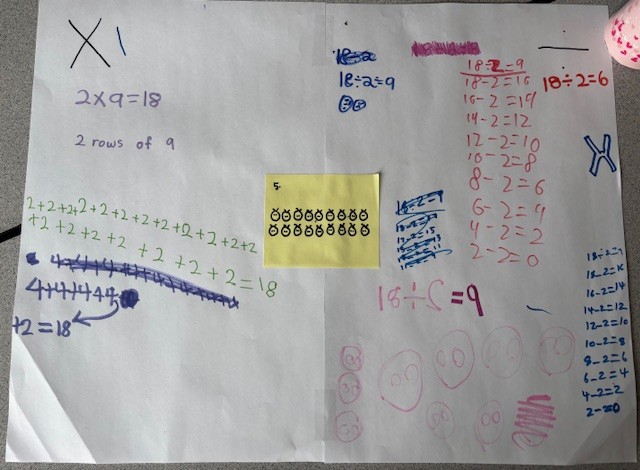 X
2×9=18
2 rows of 9
2+2+2+2+2+2+2+2+2+2+2+2+2
+2+2+2+2+2+2+2+2=18
4+4+4+4
+2=18
5.
18÷2=9
18÷2=9
18-2=16
16-2=14
14-2=12
12-2=10
10-2=8
8-2=6
6-2=4
4-2=2
2-2=0
÷
18÷2=6
18-2=16
16-2=14
14-2=12
12-2=10
10-2=8
8-2=6
6-2=4
4-2=2
2-2=0